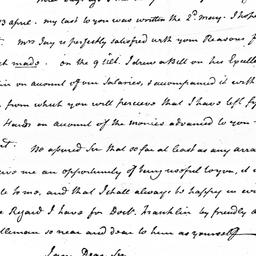 13 april. my last to you was written the 2d. may. I hope
Mrs Jay is perfectly satisfied with your Reasons f
ch made. on the 9 ult. I drew a Bill on his Excelle
in on account of our Salaries, & accompanied it with
from which you will perceive that I have left fif
Hands on account of the monies advanced to you
Be assured Sir that so far at least as any arra
ive me an opportunity of being useful to you, it
le to me, and that I shall always be happy in ev
e Regard I have for Doct. Franklin by friendly
tleman so near and dear to him as yourself
I am Dear Sir